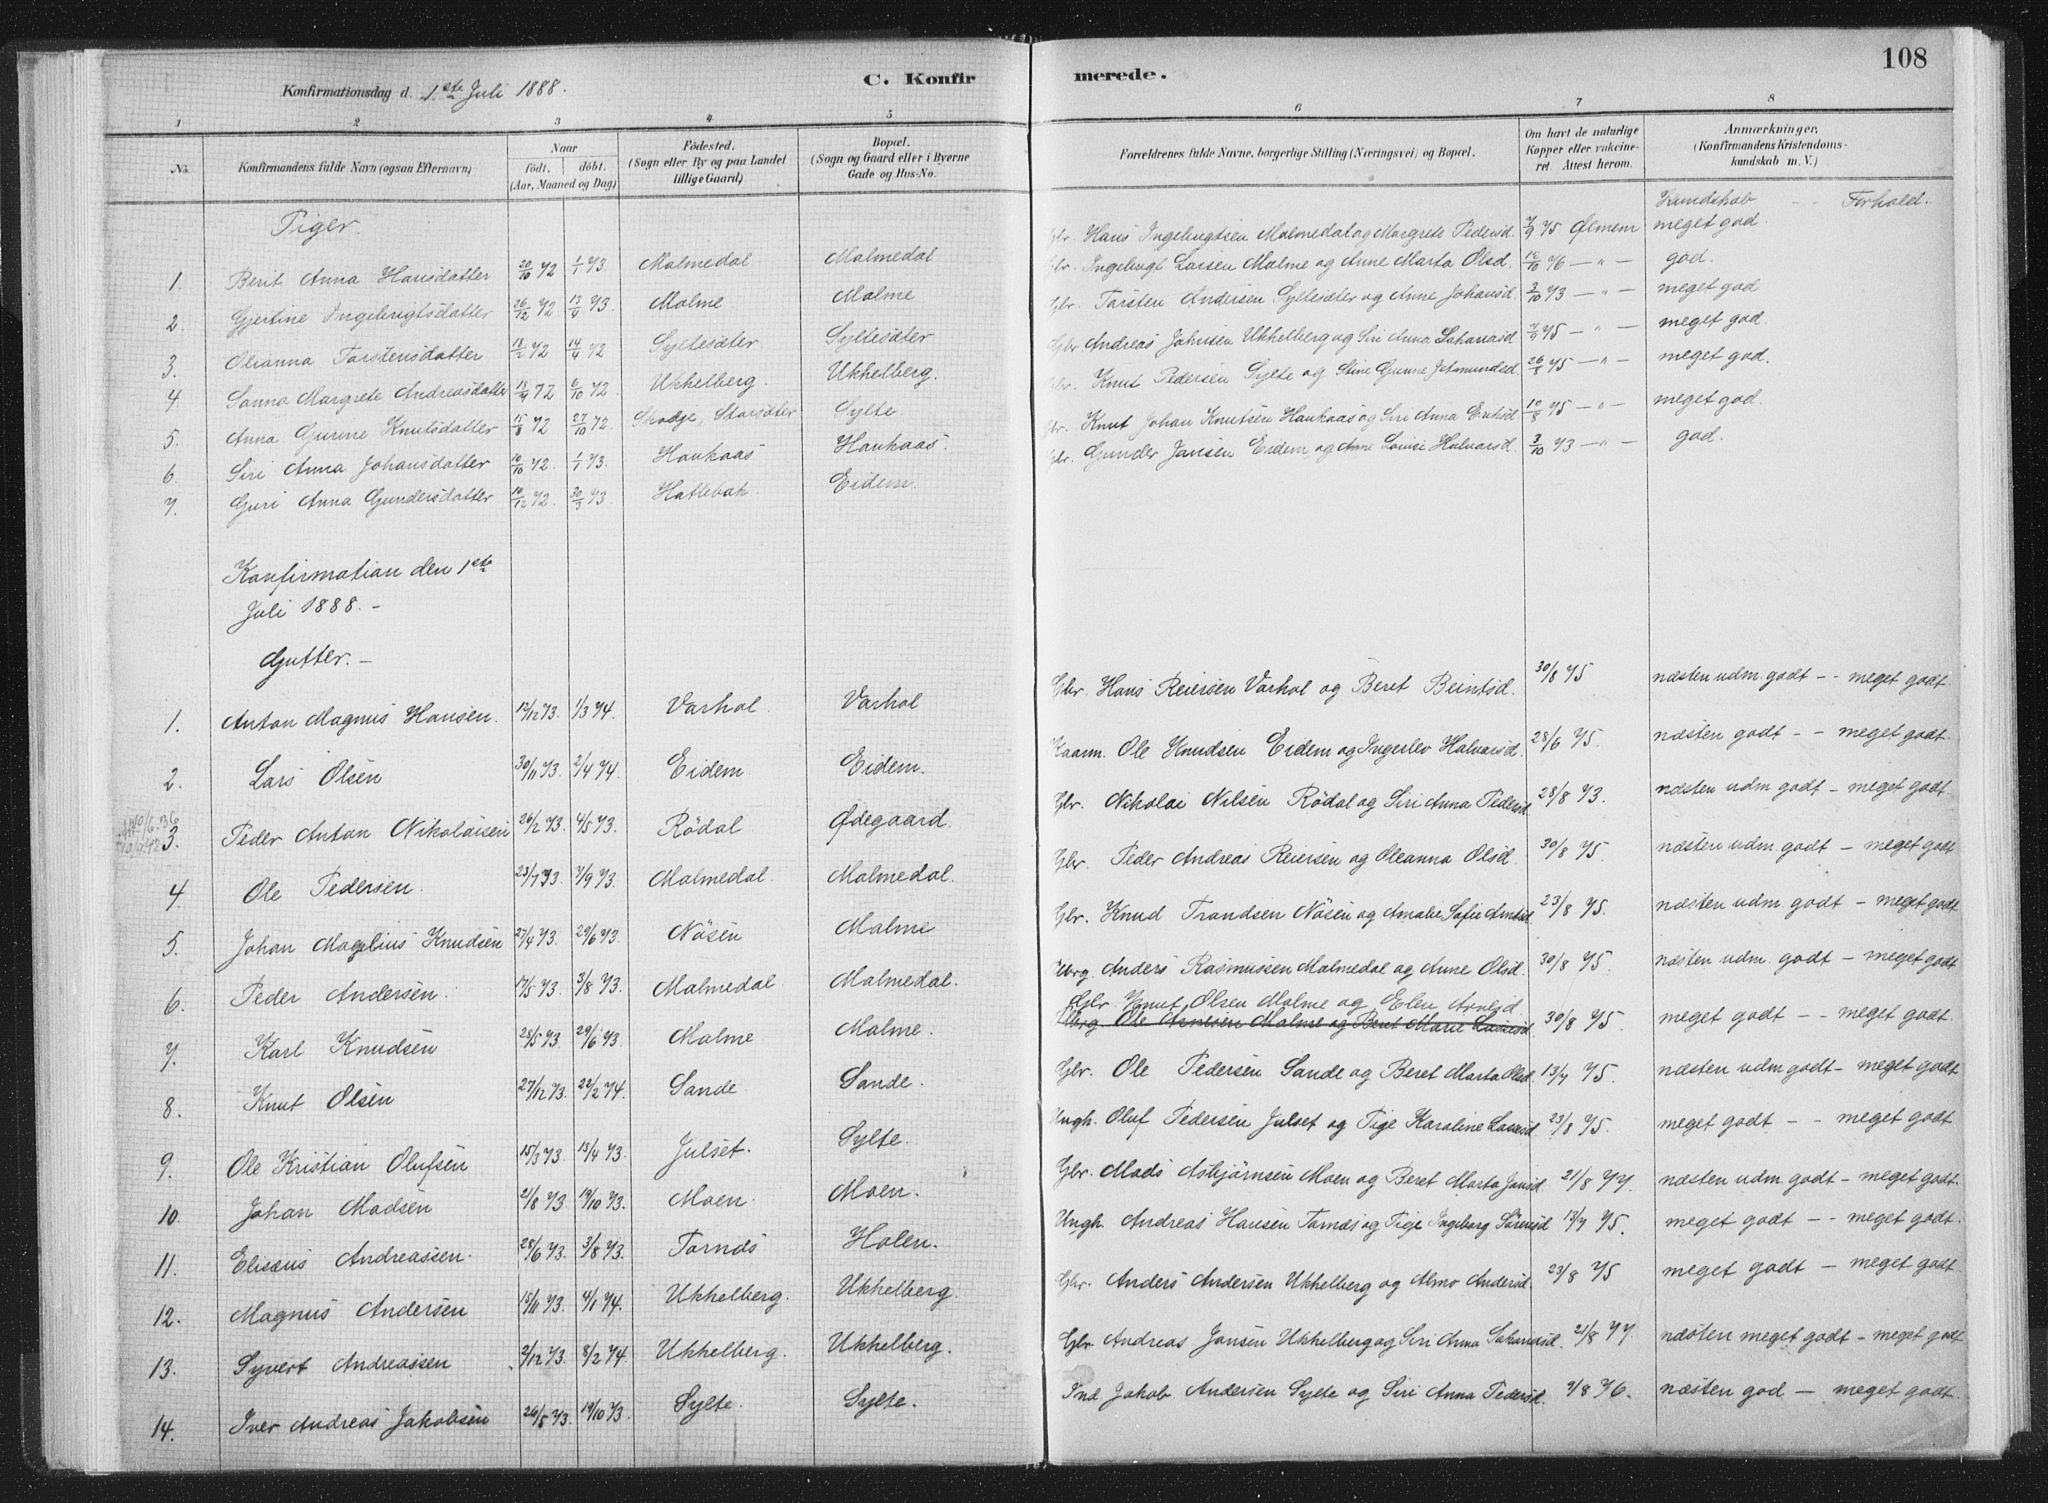 108
C. Konfirmerede.
Konfirmationsdag d. 1ste Juli 1888.
1 2 3 4 5 6 7 8
No.
Konfirmandens fulde Navn (ogsaa Efternavn)
Naar
født. døbt.
(Aar, Maaned og Dag)
Fødested.
(Sogn eller By og paa Landet
tillige Gaard)
Bopæl.
(Sogn og Gaard eller i Byerne
Gade og Hus-No.
Forældrenes fulde Navne, borgerlige Stilling (Næringsvei) og Bopæl.
Om havt de naturlige
Kopper eller vakcine-
ret. Attest herom.
Anmærkninger,
(Konfirmandens Kristendoms-
kundskab m. V.)
Kundskab - - Forhold.
Piger.
1. Berit Anna Hansdatter 20/10 72 1/1 73 Malmedal Malmedal Gbr. Hans Ingebrigtsen Malmedal og Margrete Pedersd. 7/9 75 Ølmem meget god.
2. Gjertine Ingebrigtsdatter 26/12 72 13/4 73 Malme Malme Gbr. Ingebrigt Larsen Malme og Anne Marta Olsd. 12/10 76 — " — god.
3. Olianna Torstensdatter 18/2 72 14/4 72 Syltesæter Syltesæter Gbr. Torsten Andersen Syltesæter og Anne Johansd. 3/10 73 — " — meget god
4. Sanna Margrete Andreasdatter 18/9 72 6/10 72 Ukkelberg. Ukkelberg. Gbr. Andreas Johnsen Ukkelberg og Siri Anna Sakariasd 7/9 75 — " — meget god.
5. Anna Gurine Knutsdatter 15/8 72 27/10 72 Skodje, Storsæter Sylte. Gbr. Knut Pedersen Sylte og Stine Gunne Jetmundsd. 26/8 75 — " — meget god.
6. Siri Anna Johansdatter 10/10 72. 1/1 73. Haukaas Haukaas. Gbr. Knut Johan Knutsen Haukaas og Siri Anna Eriksd 10/8 75 — " — meget god.
7. Guri Anna Gundersdatter 10/12 72. 30/3 73. Hatlebak. Eidem. Gbr. Gunder Jansen Eidem og Anne Louise Halvarsd. 3/10 73 — " — god.
Konfirmation den 1ste
Juli 1888. -
Gutter. -
1. Anton Magnus Hansen. 12/12 73. 1/3 74. Varhol Varhol Gbr. Hans Reiersen Varhol og Beret Beintsd. 30/8 75 næsten udm. godt - - meget godt.
2. Lars Olsen 30/11 73. 2/4 74. Eidem. Eidem. Kaarm. Ole Knudsen Eidem og Ingerlev Halvarsd. 28/6 75. næsten godt - - meget godt.
3. Peder Anton Nikolaisen 26/2 73. 4/5 73. Rödal Ødegaard. Gbr. Nikolai Nilsen Rödal og Siri Anna Pedersd. 28/8 73. næsten udm godt - meget godt.
4. Ole Pedersen. 23/7 73. 7/9 73. Malmedal. Malmedal. Gbr. Peder Andreas Reiersen og Oleanna Olsd. 30/8 75. næsten udm. godt - meget godt
5. Johan Magelius Knudsen 27/4 73. 29/6 73. Nösen Malme Gbr. Knud Trondsen Nösen og Amalie Sofie Arntsd. 23/8 75. næsten udm. godt - meget godt
6. Peder Andersen. 17/5 73. 3/8 73. Malmedal Malmedal. Anders Rasmussen Malmedal og Anne Olsd. 30/8 75. næsten udm. godt - meget godt
7. Karl Knudsen 28/5 73. 29/6 73. Malme Malme. Gbr. Knut Olsen Malme og Elen Arnesd. 30/8 75. meget godt - - meget godt.
Ole Arnesen Malme og Beret Marie Lassesd
8. Knut Olsen 27/12 73. 22/2 74. Sande. Sande. Gbr. Ole Pedersen Sande og Beret Marta Olsd. 13/7 75. næsten udm godt - meget godt
9. Ole Kristian Olufsen 15/3 73. 13/4 73. Julset. Sylte. Ungk. Oluf Pedersen Julset og Pige Karoline Lassesd 23/8 75. meget godt - - meget godt.
10. Johan Madsen 21/8 73. 19/10 73. Moen. Moen. Gbr. Mads Asbjørnsen Moen og Beret Marta Jonsd. 21/8 77. næsten udm. godt - meget godt.
11. Elisæus Andreassen. 28/6 73. 3/8 73. Tornæs Holen. Ungk. Andreas Hansen Tornæs og Pige Ingeborg Sörensd 13/7 75. meget godt - - meget godt.
12. Magnus Andersen 15/11 73. 4/1 74. Ukkelberg. Ukkelberg. Gbr. Anders Andersen Ukkelberg og Almo Andersd. 23/8 75 meget godt - meget godt.
13. Syvert Andreassen 2/12 73. 8/2 74. Ukkelberg. Ukkelberg. Gbr. Andreas Jonsen Ukkelberg og Siri Anna Sakariasd. 21/8 77. næsten meget godt - meget godt
14. Iver Andreas Jakobsen 26/8 73. 19/10 73. Sylte. Sylte. Ind. Jakob Andersen Sylte og Siri Anna Pedersd. 7/8 76. næsten god - meget godt.